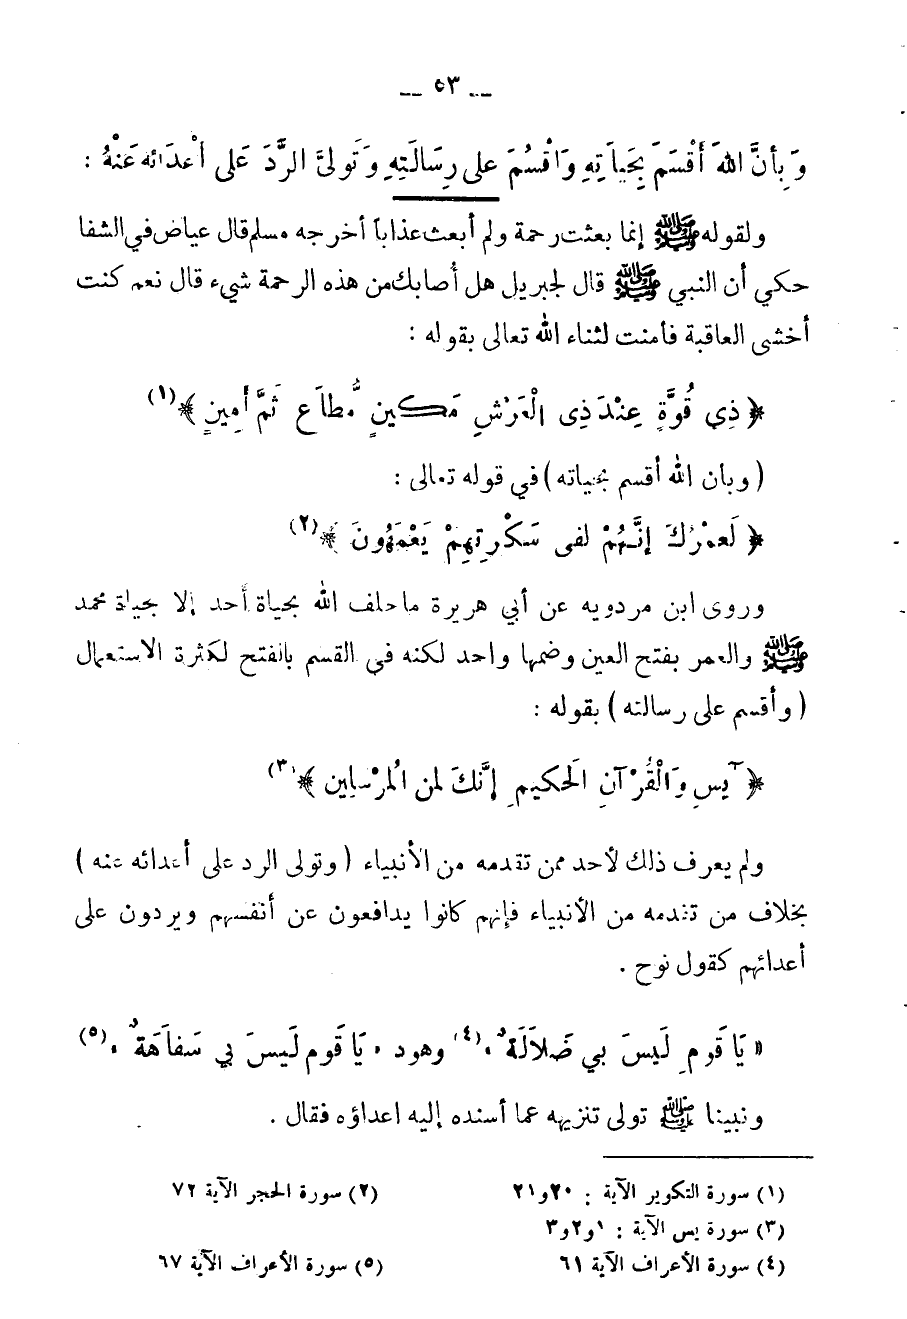 __ ٥٣ __
وَبِأَنَّ اللهَ أَقْسَمَ بِحَيَاتِهِ وَاقْسُمَ عَلى رِسَالَتِهِ وَتَولىَّ الرَّدَ عَلى أعْدَائه عَنْهُ :
ولقوله ﷺ إنما بعثت رحمة ولم أبعث عذاباً أخرجه مسلم قال عياض في الشفا
حكي أن النبي ﷺ قال لجبريل هل أصابك من هذه الرحمة شيء قال نعم كنت
أخشى العاقبة فأمنت لثناء الله تعالى بقوله :
﴿ ذِي قُوَّةٍ عِنْدَ ذِى الْعَرْشِ مَكينٍ مُّطَاَعٍ ثَمَّ أَمِينٍ ﴾(١)
( وبأن الله أقسم بحياته ) في قوله تعالى :
﴿ لَعمْرُكَ إنَّهُمْ لفى سَكْرتِهِمْ يَعْمَهُونَ ﴾(٢)
وروى ابن مردويه عن أبي هريرة ما حلف الله بحياة أحد إلا بحياة محمد
ﷺ والعمر بفتح العين وضمها واحد لكنه في القسم بالفتح لكثرة الاستعمال
( وأقسم على رسالته ) بقوله :
﴿ يسِ وَالْقُرْآنِ الَحكيمِ إنَّكَ لمن الُمرْسلِين ﴾(٣)
ولم يعرف ذلك لأحد ممن تقدمه من الأنبياء ( وتولى الرد على أعدائه عنه )
بخلاف من تقدمه من الأنبياء فإنهم كانوا يدافعون عن أنفسهم ويردون على
أعدائهم كقول نوح .
« يَا قَومِ لَيسَ بي ضَلاَلَةٌ »(٤) وهود « يَا قَوم لَيسَ بي سَفاَهَةٌ »(٥)
ونبينا ﷺ تولى تنزيهه عما أسنده إليه اعداؤه فقال .
(١) سورة التكوير الآية : ٢٠و٢١
(٢) سورة الحجر الآية ٧٢
(٣) سورة يس الآية : ١و٢و٣
(٤) سورة الأعراف الآية ٦١
(٥) سورة الأعراف الآية ٦٧